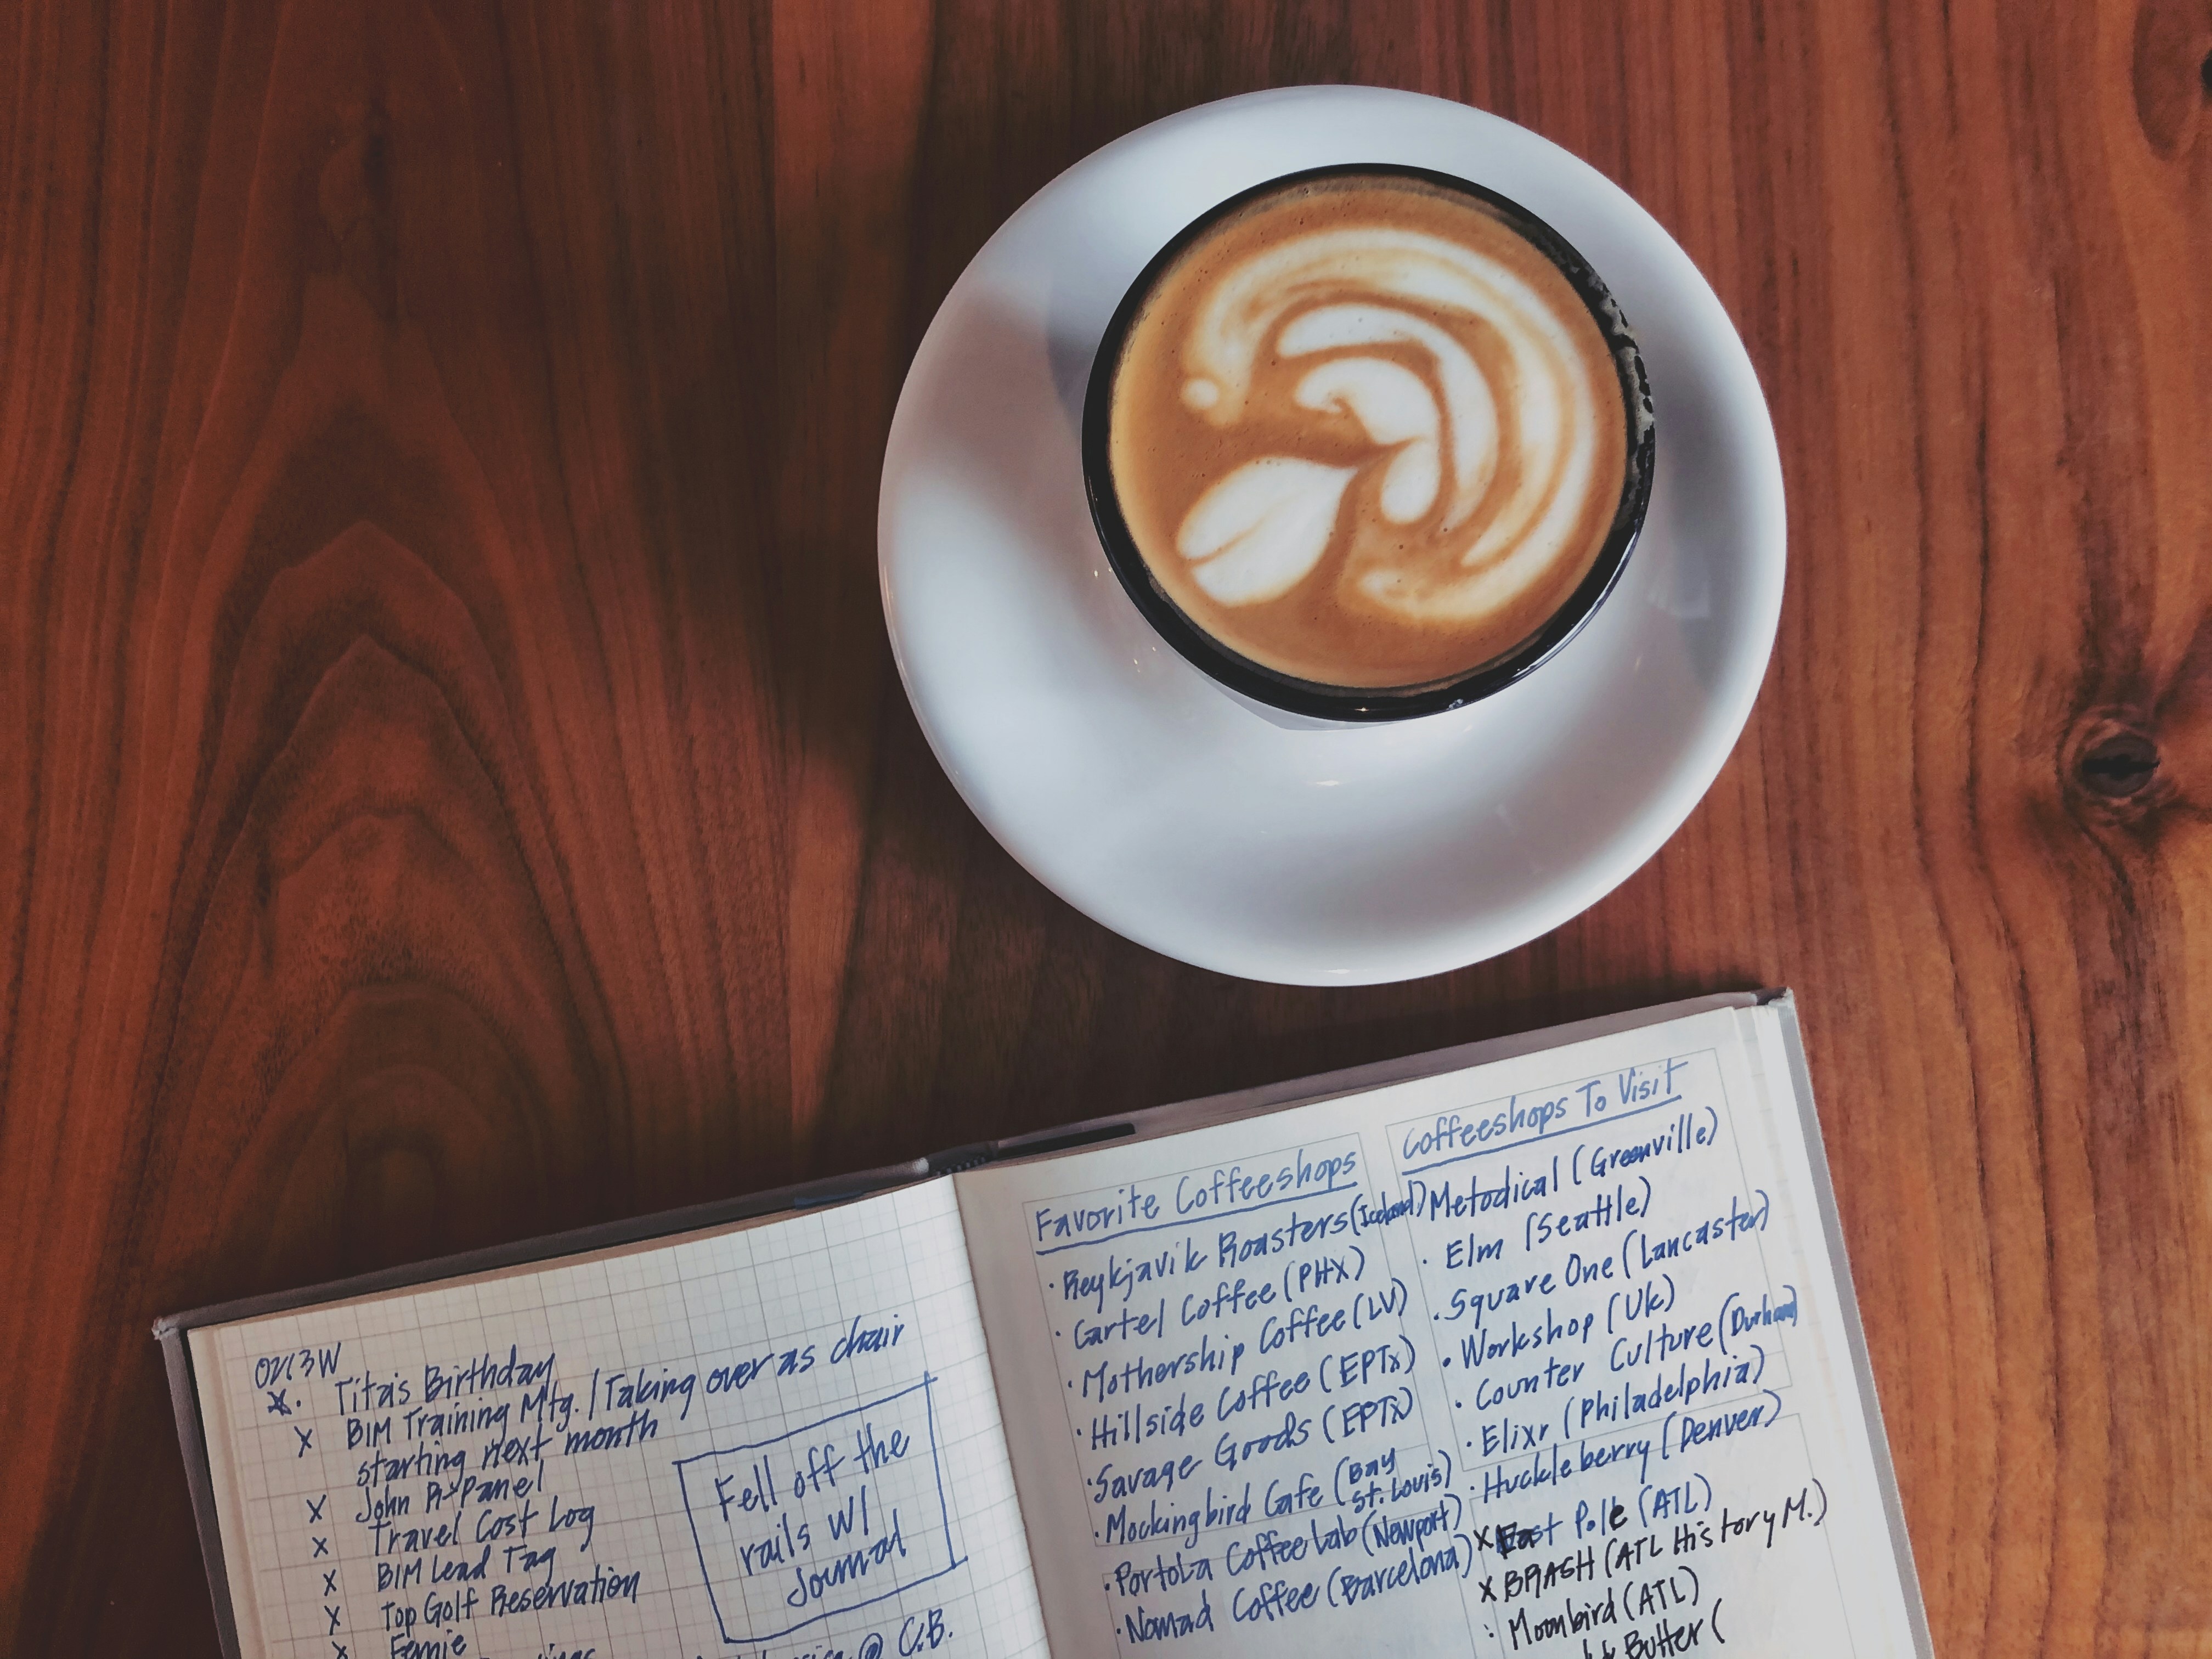 02/3W
x. Tita's Birthday
x BIM Training Mtg. / Taking over as chair
starting next month
x John R. Panel
x Travel Cost Log
x BIM Lead Tag
x Top Golf Reservation
x Fernie
@ C.B.
Fell off the
rails w/
Journal
Favorite Coffeeshops
· Reykjavik Roasters (Iceland)
· Cartel Coffee (PHX)
· Mothership Coffee (LV)
· Hillside Coffee (EPTx)
· Savage Goods (EPTx)
· Mockingbird Cafe (Bay
St. Louis)
· Portola Coffee Lab (Newport)
· Nomad Coffee (Barcelona)
Coffeeshops To Visit
Metodical (Greenville)
· Elm (Seattle)
· Square One (Lancaster)
· Workshop (UK)
· Counter Culture (Durham)
· Elixr (Philadelphia)
· Huckleberry (Denver)
x East Pole (ATL)
x BRASH (ATL History M.)
· Moonbird (ATL)
Butter (